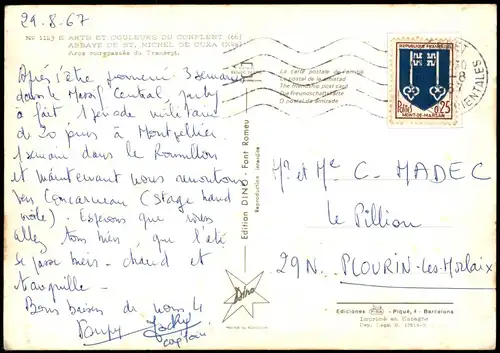 29.8.67
Nº 1123 E ARTS ET COULEURS DU CONFLENT (66)
ABBAYE DE ST. MICHEL DE CUXA (XIe s)
Arcs outrepassés du Transept.
Après s'être promenés 3 semaines
dans le Massif Central
a fait 1 période militaire
de 20 jours à Montpellier
1 semaine dans le Roussillon
et maintenant nous remontons
vers Concarneau (Stage hand
voile) - Espérons que vous
allez tous bien, que l'été
se passe bien - chaud et
tranquille -
Bons baisers de nous 4
Edition DINO - Font Romeu
Reproduction interdite
Dino
La carte postale de l'amitié
La postal de la amistad
The friendship post card
Die Freundschaftskarte
O postal da amizade
REPUBLIQUE FRANÇAISE
Postes 0,25
MONT-DE-MARSAN
Mr et Me C. MADEC
Le Pillion
29N. PLOURIN-les-Morlaix
Ediciones FISA - Piqué, 4 - Barcelona
Imprimé en Espagne